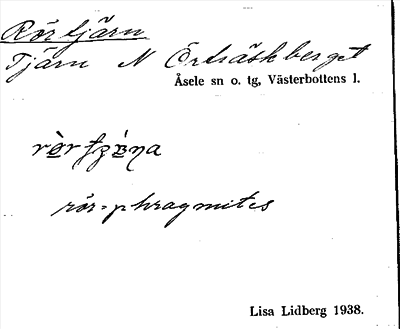 Rörtjärn
Tjärn N Örträskberget
Åsele sn o. tg, Västerbottens l.
rör-phragmites
Lisa Lidberg 1938.